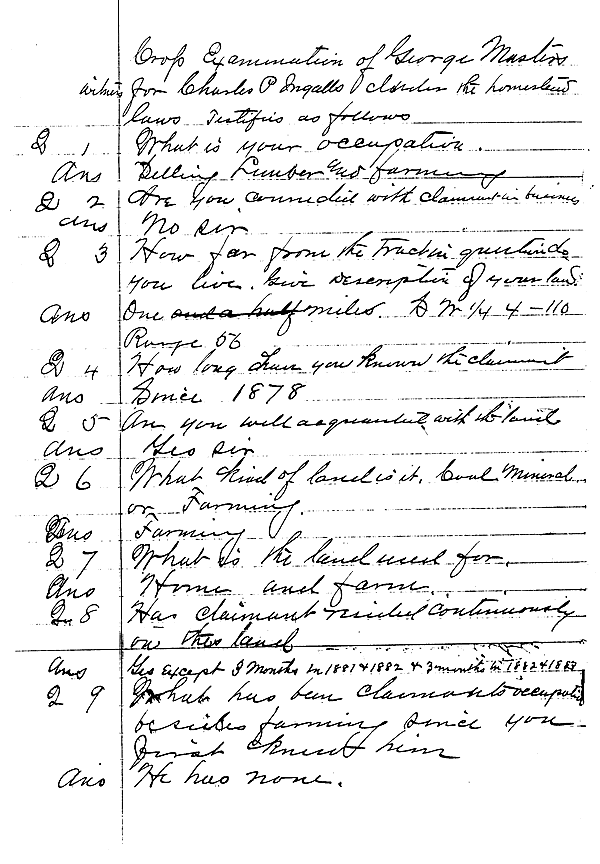 Cross Examination of George Masters
witness for Charles P Ingalls under the homestead
laws Testifies as follows
Q 1 What is your occupation.
Ans Selling Lumber and farming
Q 2 Are you connected with claimant in business
Ans No sir
Q 3 How far from the Tract in question do
you live. Give Description of your land.
Ans One and a half miles. S W 1/4 4-110
Range 56
Q 4 How long have you known the claimant
Ans Since 1878
Q 5 Are you well acquainted with the land
Ans Yes sir
Q 6 What kind of land is it. Coal Mineral
or Farming.
Ans Farming
Q 7 What is the land used for.
Ans Home and farm.
Q 8 Has claimant resided continuously
on this land
Ans Yes Except 3 Months in 1881 & 1882 & 3 months in 1882 & 1883
Q 9 What has been claimants occupation
besides farming since you
first knew him
Ans He has none.